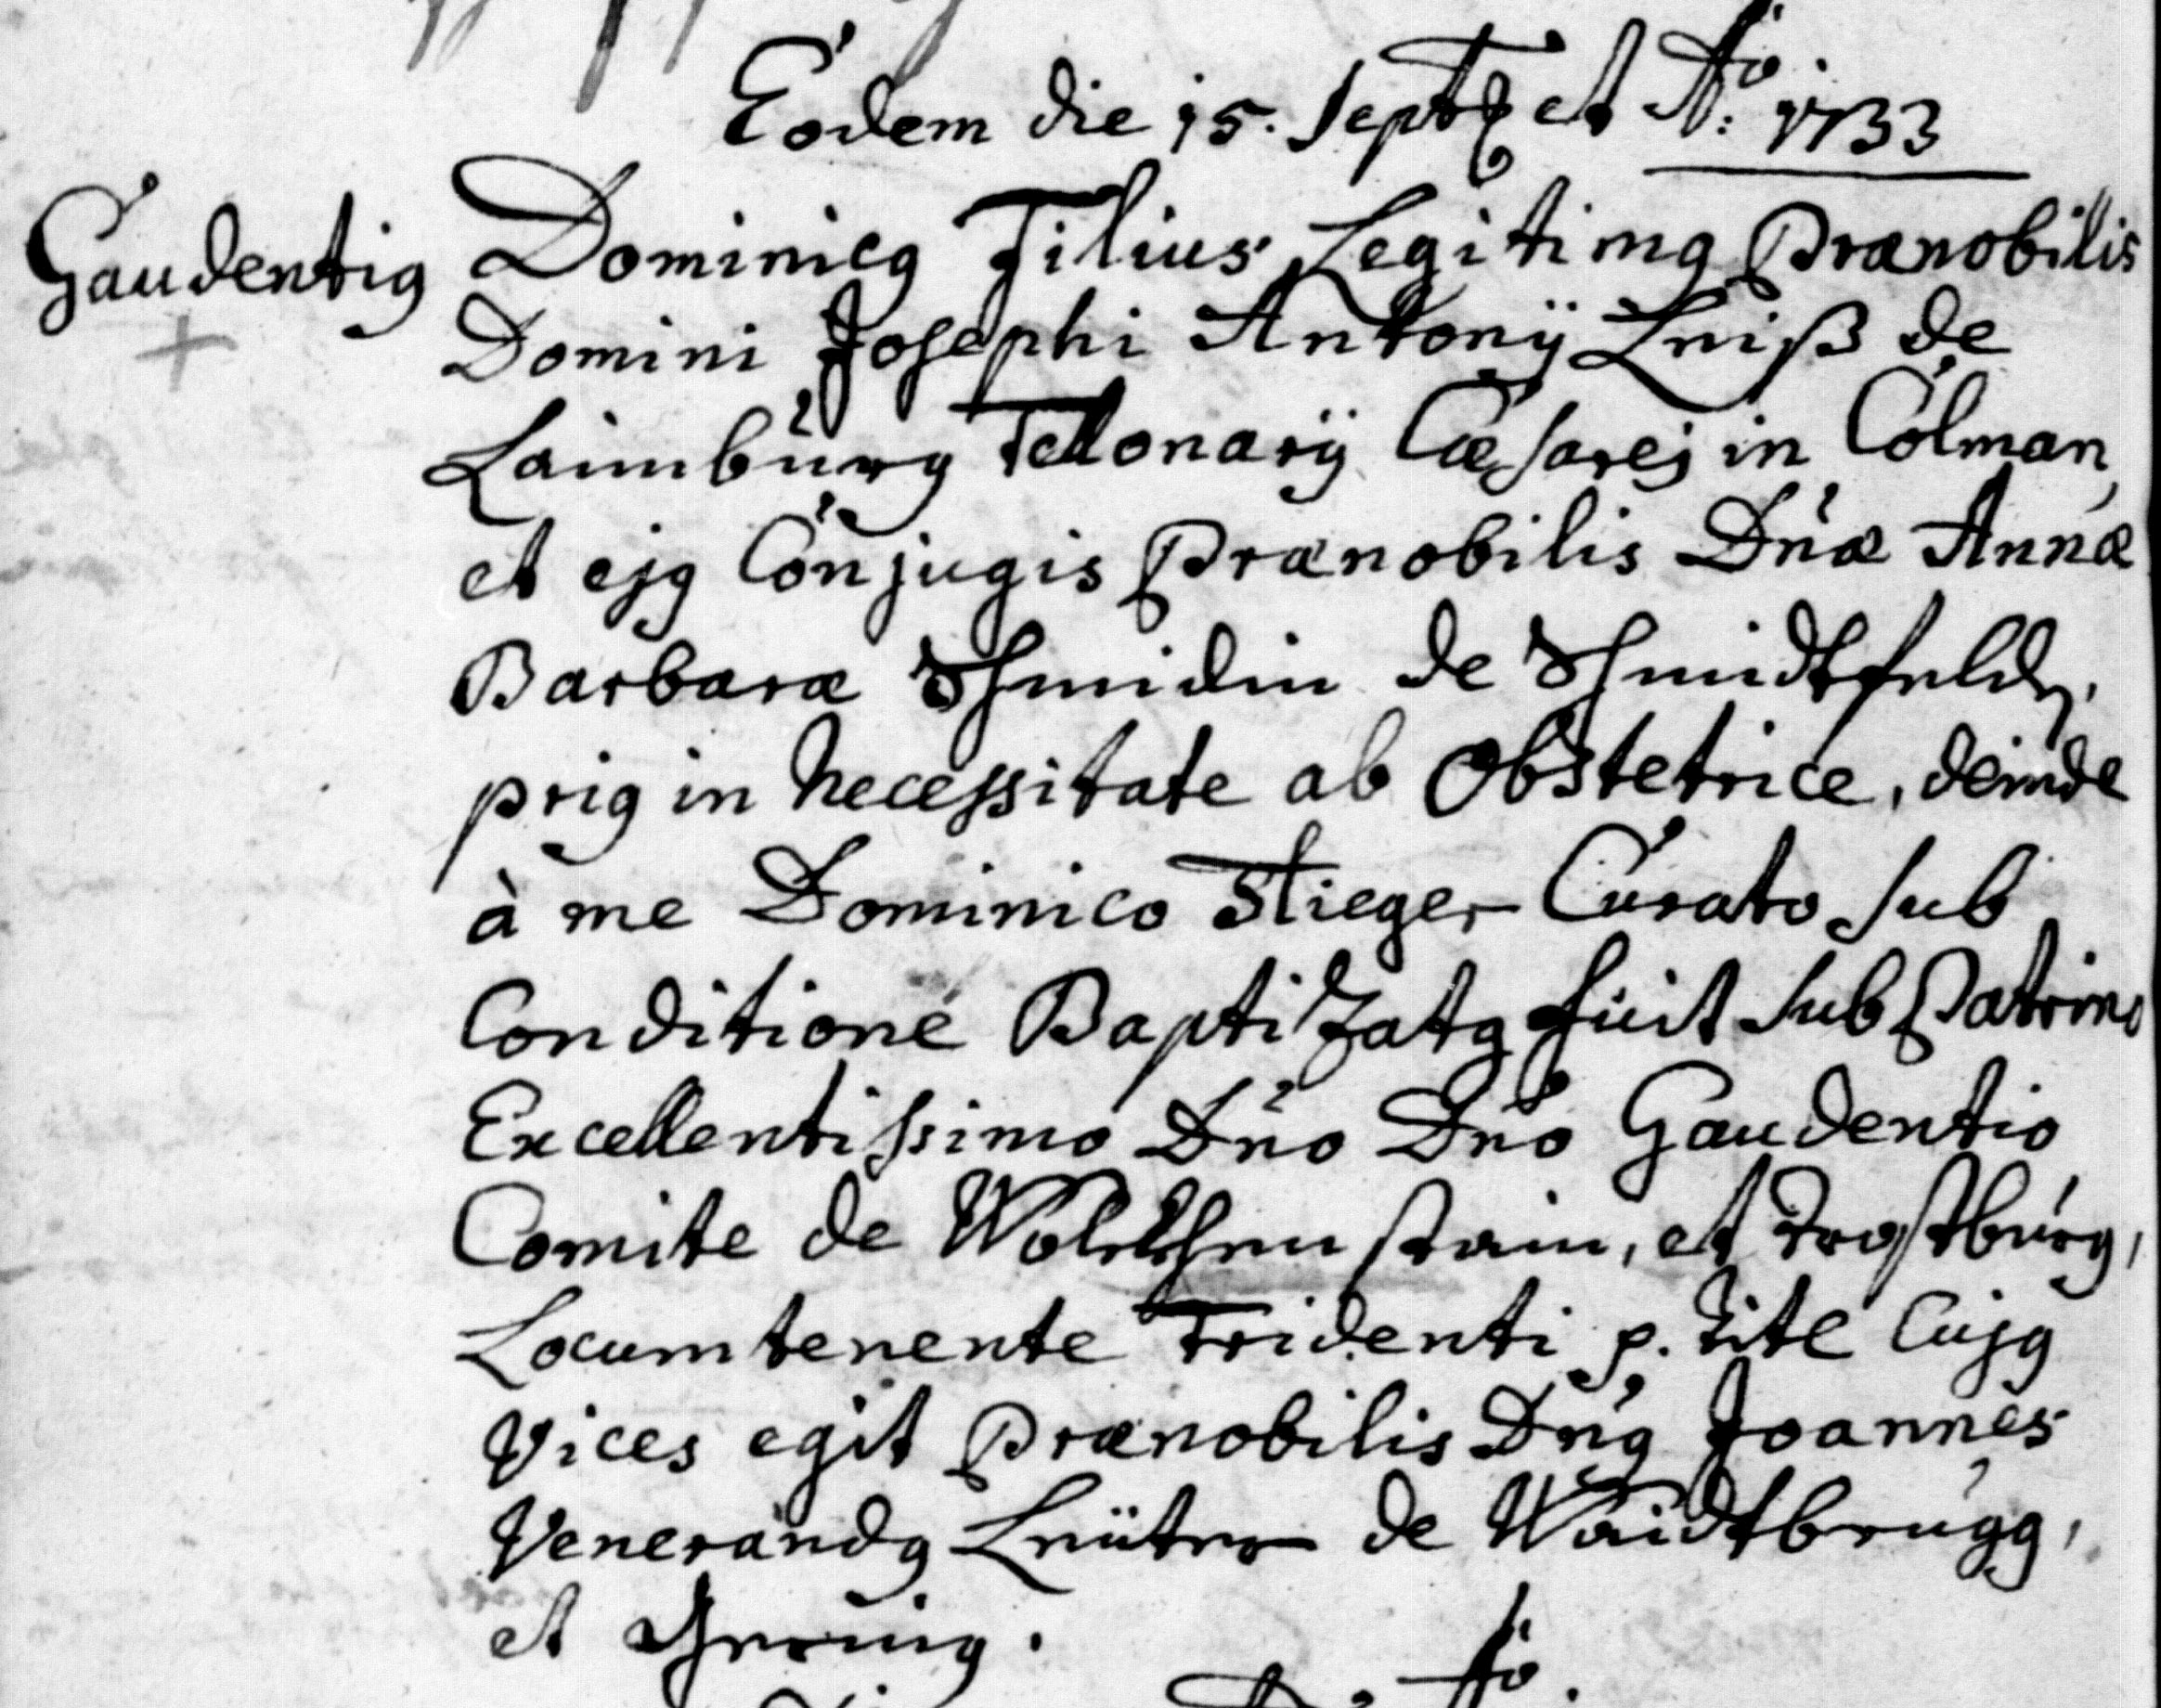 Eodem die 15. Septb et Aō: 1733
Gaudentiꝰ Dominicꝰ Filius Legitimꝰ Prænobilis
Domini Josephi Antonÿ Leiß de
Laimburg Telonarÿ Cæsarej in Colman,
et ejꝰ Conjugis Prænobilis Dnæ Annæ
Barbaræ Schmidin de Schmidtfeldt,
priꝰ in Necessitate ab Obstetrice, deinde
à me Dominico Stieger Curato sub
Conditione Baptizatꝰ fuit sub Patrino
Excellentissimo Dno Dno Gaudentio
Comite de Wolckhenstain, et Trostburg,
Locumtenente Tridenti p. titl Cujꝰ
Vices egit Prænobilis Dnꝰ Joannes
Venerandꝰ Leüter de Waidtbrugg,
et